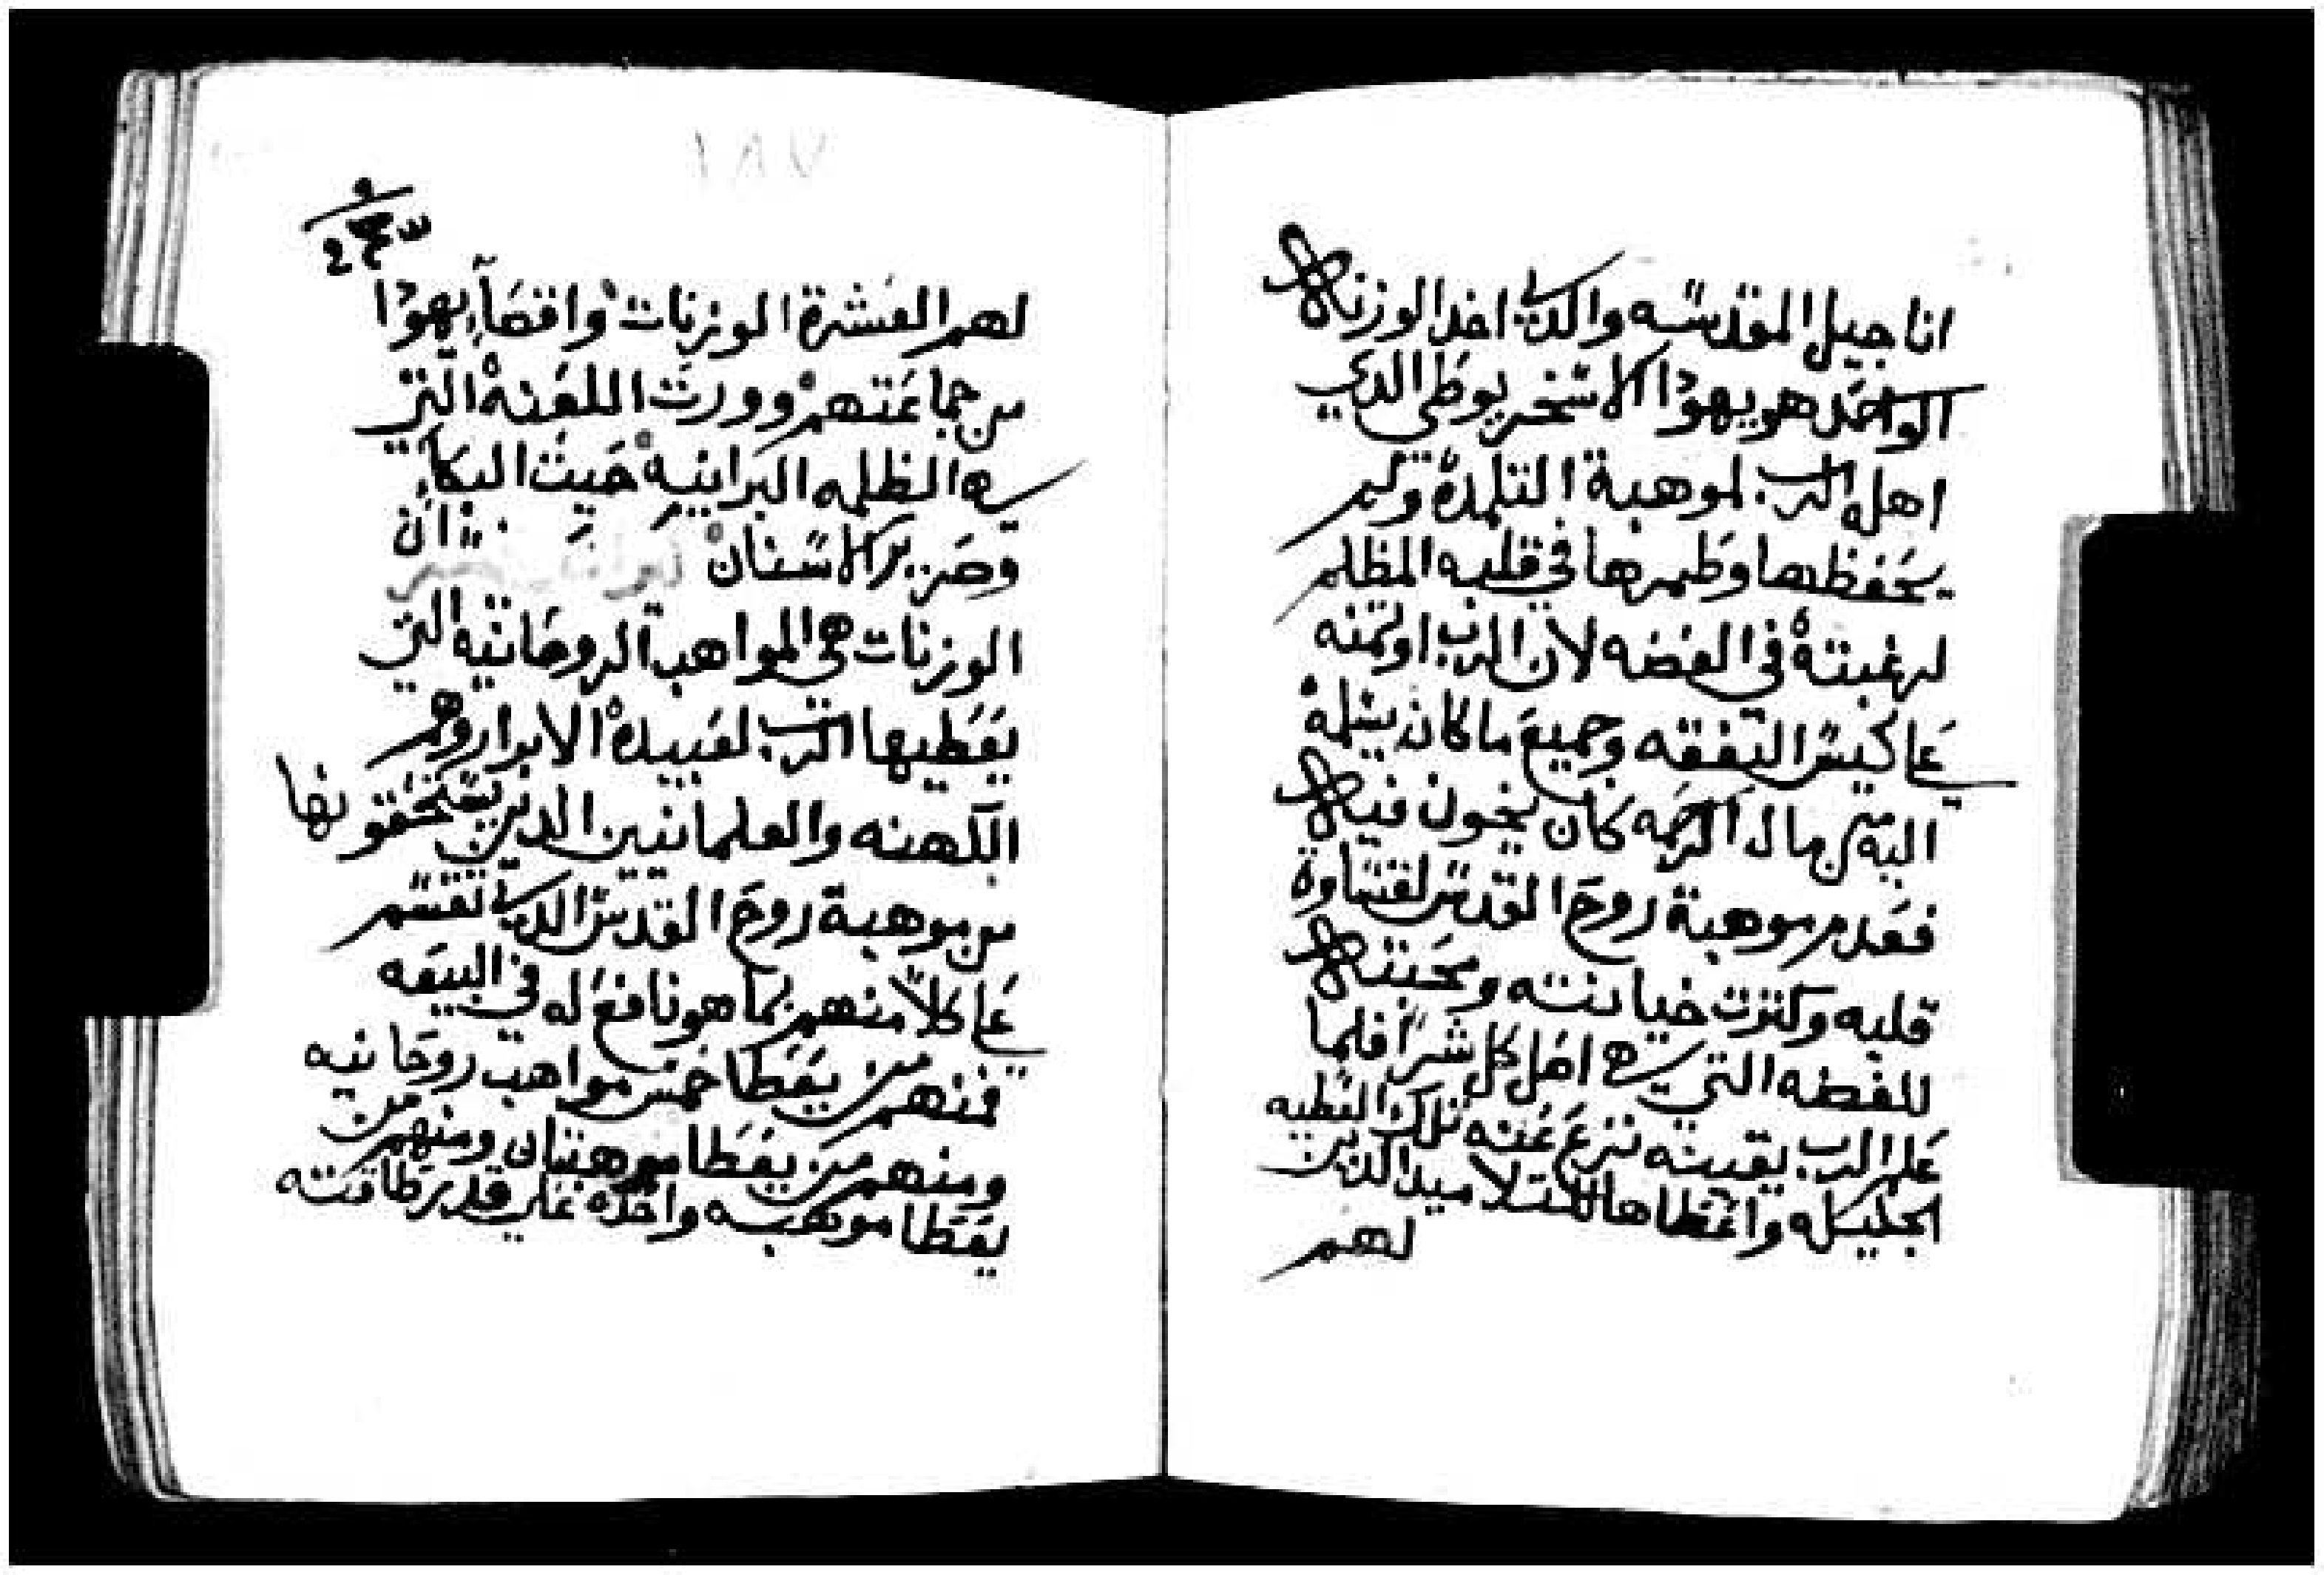 اناجيل المقدسه والدي اخد الوزنه
الواحد هو يهودا الاسخريوطي الدي
اهله الرب لموهبة التلمدة ولم
يحفظها وطمرها في قلبه المظلم
لرغبته في الفضه لان الرب اوتمنه
علي كيس النفقه وجميع ما كان
اليه من مال الرحمه كان يخون فيه
فعدم موهبة روح القدس لقساوة
قلبه وكترت خيانته ومحبته
للفضه التي هي اصل كل شر فلما
علم الرب يقينه نزع عنه تلك العطيه
الجليله واعطاها للتلاميد الدين
لهم
لهم العشرة الوزنات واقصا يهودا
من جماعتهم وورت اللعنه التي
هي الظلمه البرانيه حيت البكا
وصرير الاسنان ان
الوزنات هي المواهب الروحانيه التي
يعطيها الرب لعبيده الابرار وهم
الكهنه والعلمانيين الدين يستحقونها
من موهبة روح القدس الدي تقسم
علي كلا منهم بما هو نافع له في البيعه
فمنهم من يعطا خمس مواهب روحانيه
ومنهم من يعطا موهبتان ومنهم من
يعطا موهبه واحده علي قدر طاقته